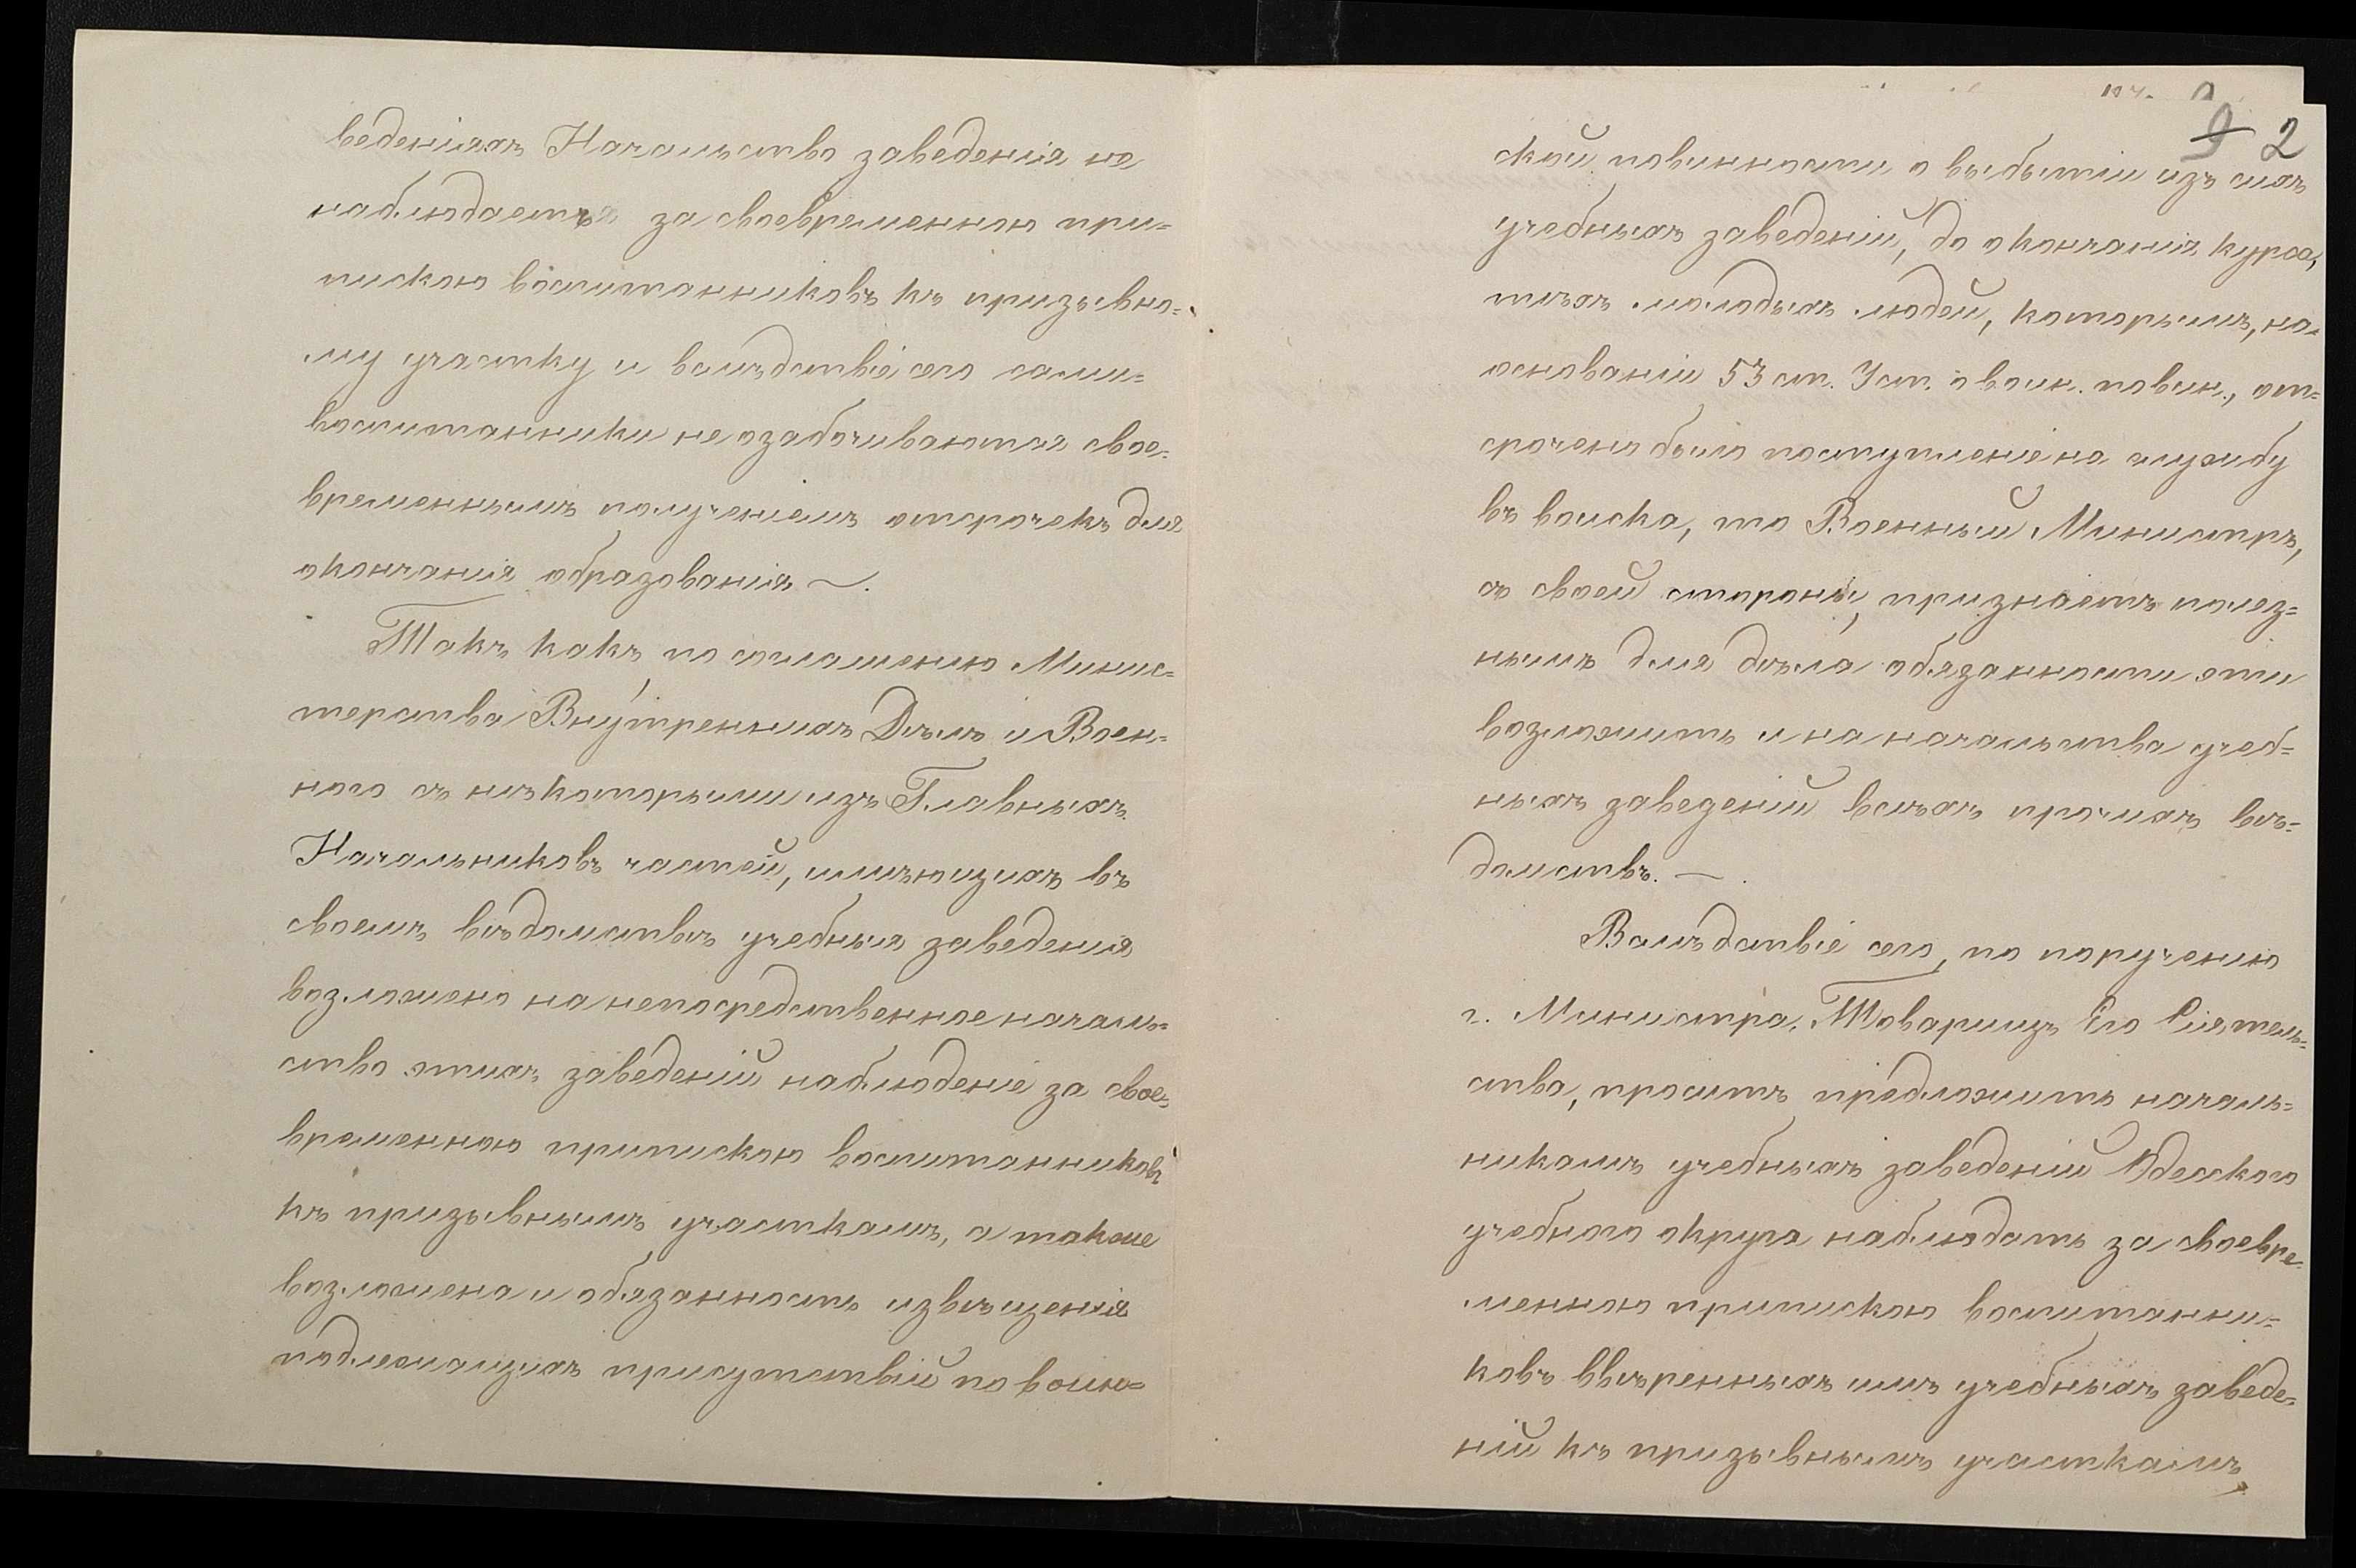 веденіяхъ Начальство заведенія не
наблюдаетъ за своевременною при-
пискою воспитанниковъ къ призывно-
му участку и вслѣдствіе сего сами
воспитанники не озабочиваются свое-
временнымъ полученіемъ отсрочекъ для
окончанія образованія —.
Такъ какъ, по соглашенію Минис-
терства Внутреннихъ Дѣлъ и Воен-
ного съ нѣкоторыми изъ Главныхъ
Начальниковъ частей, имѣющихъ въ
своемъ вѣдомствѣ учебныя заведенія
возложено на непосредственное началь-
ство этихъ заведеній наблюденіе за свое-
временною припискою воспитанниковъ
къ призывнымъ участкамъ, а также
возложена и обязанность извѣщенія
подлежащихъ присутствій по воин-
2
ской повинности о выбытіи изъ сихъ
учебныхъ заведеній, до окончанія курса,
тѣхъ молодыхъ людей, которымъ, на
основаніи 53 ст. Уст. о воин. повин., от-
срочено было поступленіе на службу
въ войска, то Военный Министръ,
съ своей стороны, признаетъ полез-
нымъ для дѣла обязанности эти
возложить и на начальства учеб-
ныхъ заведеній всѣхъ прочихъ вѣ-
домствъ. —
Вслѣдствіе сего, по порученію
г. Министра, Товарищъ Его Сіятель-
ства, проситъ предложить началь-
никамъ учебныхъ заведеній Одесского
учебного округа наблюдать за своевре-
менною припискою воспитанни-
ковъ ввѣренныхъ имъ учебныхъ заведе-
ній къ призывнымъ участкамъ,